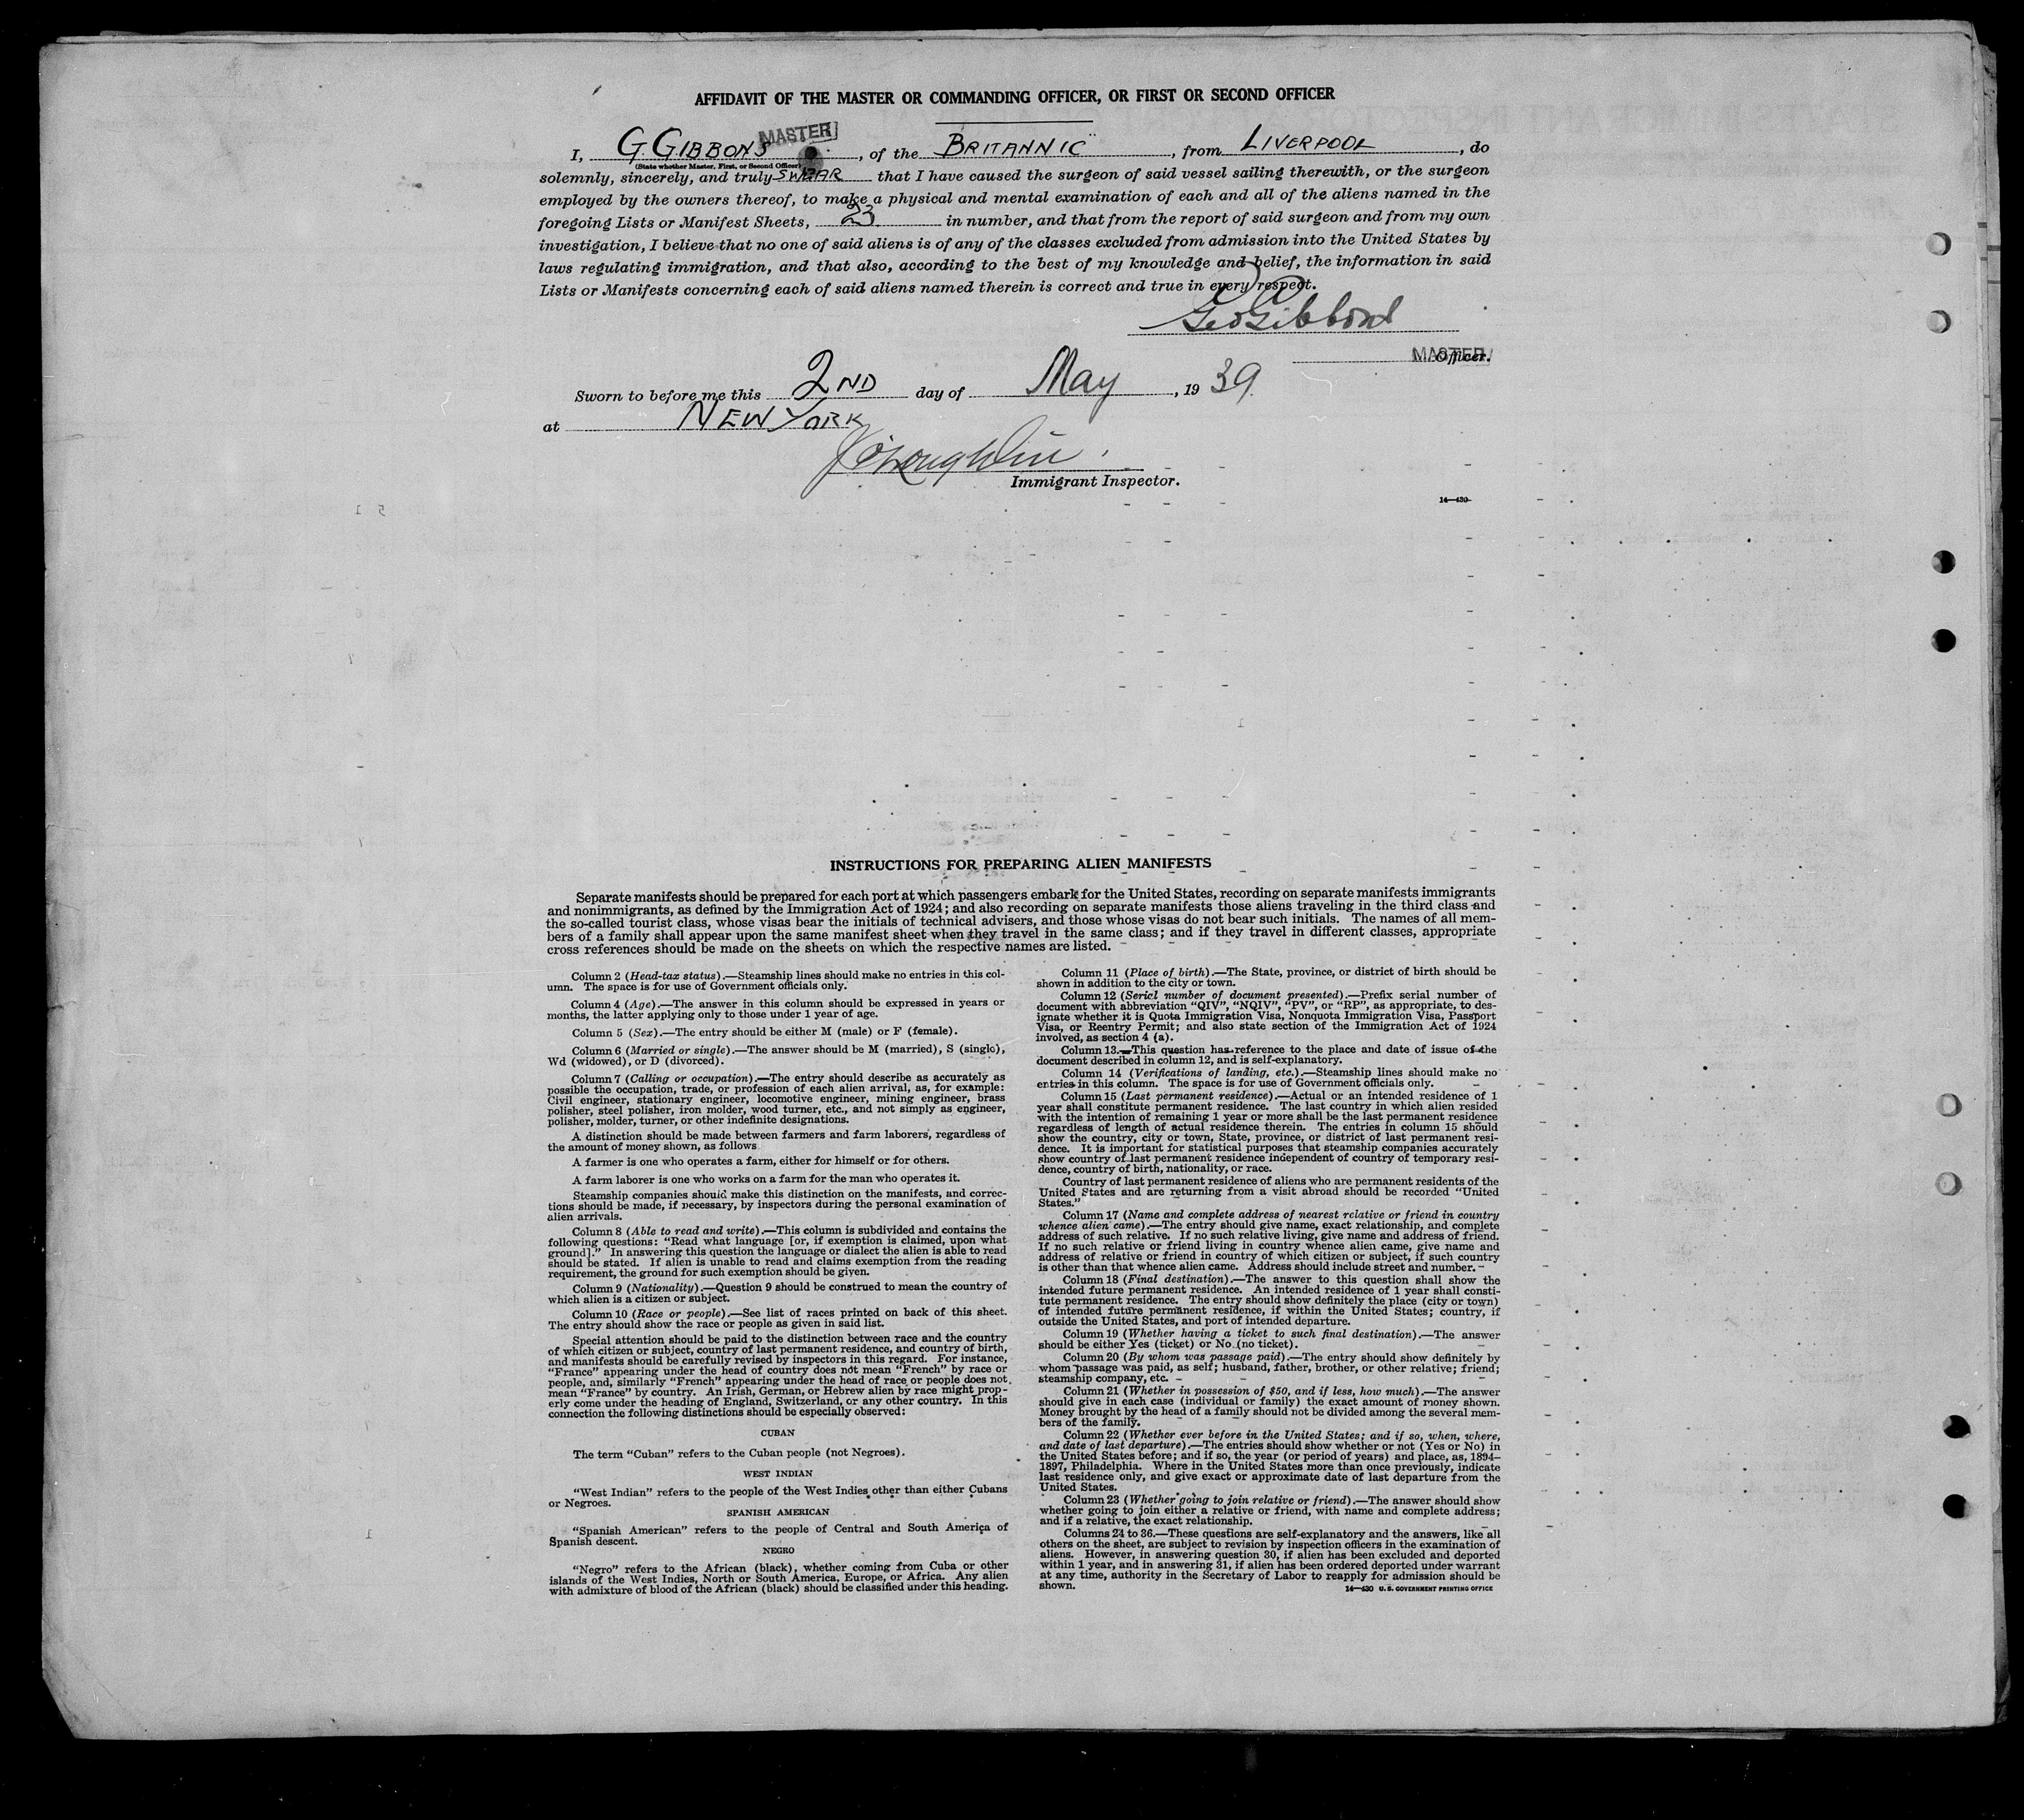 AFFIDAVIT OF THE MASTER OR COMMANDING OFFICER, OR FIRST OR SECOND OFFICER
I, G. GIBBONS MASTER, of the BRITANNIC, from LIVERPOOL, do
(State whether Master, First, or Second Officer)
solemnly, sincerely, and truly SWEAR that I have caused the surgeon of said vessel sailing therewith, or the surgeon
employed by the owners thereof, to make a physical and mental examination of each and all of the aliens named in the
foregoing Lists or Manifest Sheets, 23 in number, and that from the report of said surgeon and from my own
investigation, I believe that no one of said aliens is of any of the classes excluded from admission into the United States by
laws regulating immigration, and that also, according to the best of my knowledge and belief, the information in said
Lists or Manifests concerning each of said aliens named therein is correct and true in every respect.
Geo Gibbons
MASTER Officer.
Sworn to before me this 2ND day of May, 1939.
at NEW YORK
Immigrant Inspector.
14—430
INSTRUCTIONS FOR PREPARING ALIEN MANIFESTS
Separate manifests should be prepared for each port at which passengers embark for the United States, recording on separate manifests immigrants
and nonimmigrants, as defined by the Immigration Act of 1924; and also recording on separate manifests those aliens traveling in the third class and
the so-called tourist class, whose visas bear the initials of technical advisers, and those whose visas do not bear such initials. The names of all mem-
bers of a family shall appear upon the same manifest sheet when they travel in the same class; and if they travel in different classes, appropriate
cross references should be made on the sheets on which the respective names are listed.
Column 2 (Head-tax status).—Steamship lines should make no entries in this col-
umn. The space is for use of Government officials only.
Column 4 (Age).—The answer in this column should be expressed in years or
months, the latter applying only to those under 1 year of age.
Column 5 (Sex).—The entry should be either M (male) or F (female).
Column 6 (Married or single).—The answer should be M (married), S (single),
Wd (widowed), or D (divorced).
Column 7 (Calling or occupation).—The entry should describe as accurately as
possible the occupation, trade, or profession of each alien arrival, as, for example:
Civil engineer, stationary engineer, locomotive engineer, mining engineer, brass
polisher, steel polisher, iron molder, wood turner, etc., and not simply as engineer,
polisher, molder, turner, or other indefinite designations.
A distinction should be made between farmers and farm laborers, regardless of
the amount of money shown, as follows
A farmer is one who operates a farm, either for himself or for others.
A farm laborer is one who works on a farm for the man who operates it.
Steamship companies should make this distinction on the manifests, and correc-
tions should be made, if necessary, by inspectors during the personal examination of
alien arrivals.
Column 8 (Able to read and write).—This column is subdivided and contains the
following questions: "Read what language [or, if exemption is claimed, upon what
ground]." In answering this question the language or dialect the alien is able to read
should be stated. If alien is unable to read and claims exemption from the reading
requirement, the ground for such exemption should be given.
Column 9 (Nationality).—Question 9 should be construed to mean the country of
which alien is a citizen or subject.
Column 10 (Race or people).—See list of races printed on back of this sheet.
The entry should show the race or people as given in said list.
Special attention should be paid to the distinction between race and the country
of which citizen or subject, country of last permanent residence, and country of birth,
and manifests should be carefully revised by inspectors in this regard. For instance,
"France" appearing under the head of country does not mean "French" by race or
people, and, similarly "French" appearing under the head of race or people does not
mean "France" by country. An Irish, German, or Hebrew alien by race might prop-
erly come under the heading of England, Switzerland, or any other country. In this
connection the following distinctions should be especially observed:
CUBAN
The term "Cuban" refers to the Cuban people (not Negroes).
WEST INDIAN
"West Indian" refers to the people of the West Indies other than either Cubans
or Negroes.
SPANISH AMERICAN
"Spanish American" refers to the people of Central and South America of
Spanish descent.
NEGRO
"Negro" refers to the African (black), whether coming from Cuba or other
islands of the West Indies, North or South America, Europe, or Africa. Any alien
with admixture of blood of the African (black) should be classified under this heading.
Column 11 (Place of birth).—The State, province, or district of birth should be
shown in addition to the city or town.
Column 12 (Serial number of document presented).—Prefix serial number of
document with abbreviation "QIV", "NQIV", "PV", or "RP", as appropriate, to des-
ignate whether it is Quota Immigration Visa, Nonquota Immigration Visa, Passport
Visa, or Reentry Permit; and also state section of the Immigration Act of 1924
involved, as section 4 (a).
Column 13.—This question has reference to the place and date of issue of the
document described in column 12, and is self-explanatory.
Column 14 (Verifications of landing, etc.).—Steamship lines should make no
entries in this column. The space is for use of Government officials only.
Column 15 (Last permanent residence).—Actual or an intended residence of 1
year shall constitute permanent residence. The last country in which alien resided
with the intention of remaining 1 year or more shall be the last permanent residence
regardless of length of actual residence therein. The entries in column 15 should
show the country, city or town, State, province, or district of last permanent resi-
dence. It is important for statistical purposes that steamship companies accurately
show country of last permanent residence independent of country of temporary resi-
dence, country of birth, nationality, or race.
Country of last permanent residence of aliens who are permanent residents of the
United States and are returning from a visit abroad should be recorded "United
States."
Column 17 (Name and complete address of nearest relative or friend in country
whence alien came).—The entry should give name, exact relationship, and complete
address of such relative. If no such relative living, give name and address of friend.
If no such relative or friend living in country whence alien came, give name and
address of relative or friend in country of which citizen or subject, if such country
is other than that whence alien came. Address should include street and number.
Column 18 (Final destination).—The answer to this question shall show the
intended future permanent residence. An intended residence of 1 year shall consti-
tute permanent residence. The entry should show definitely the place (city or town)
of intended future permanent residence, if within the United States; country, if
outside the United States, and port of intended departure.
Column 19 (Whether having a ticket to such final destination).—The answer
should be either Yes (ticket) or No (no ticket).
Column 20 (By whom was passage paid).—The entry should show definitely by
whom passage was paid, as self; husband, father, brother, or other relative; friend;
steamship company, etc.
Column 21 (Whether in possession of $50, and if less, how much).—The answer
should give in each case (individual or family) the exact amount of money shown.
Money brought by the head of a family should not be divided among the several mem-
bers of the family.
Column 22 (Whether ever before in the United States; and if so, when, where,
and date of last departure).—The entries should show whether or not (Yes or No) in
the United States before; and if so, the year (or period of years) and place, as, 1894–
1897, Philadelphia. Where in the United States more than once previously, indicate
last residence only, and give exact or approximate date of last departure from the
United States.
Column 23 (Whether going to join relative or friend).—The answer should show
whether going to join either a relative or friend, with name and complete address;
and if a relative, the exact relationship.
Columns 24 to 36.—These questions are self-explanatory and the answers, like all
others on the sheet, are subject to revision by inspection officers in the examination of
aliens. However, in answering question 30, if alien has been excluded and deported
within 1 year, and in answering 31, if alien has been ordered deported under warrant
at any time, authority in the Secretary of Labor to reapply for admission should be
shown.
14—430 U. S. GOVERNMENT PRINTING OFFICE